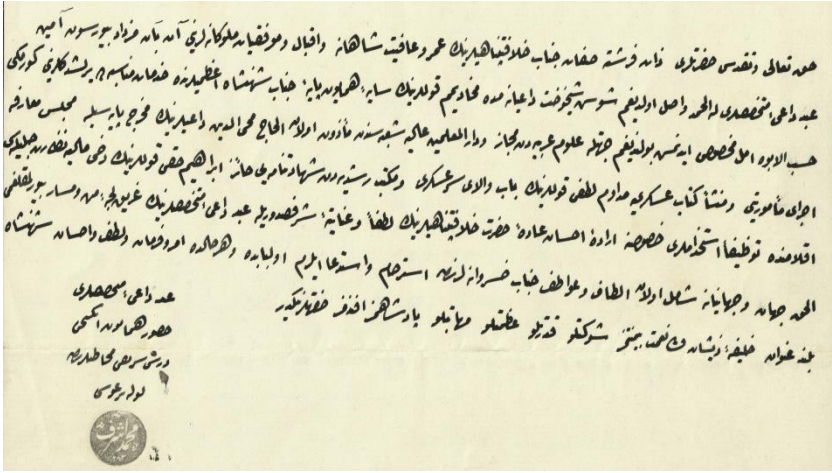 حق تعالی وتقدس حضرتلری ذات فرشته صفات جناب خلافتپناهیلرینك عمر وعافیت شاهانه واقبال وموفقیات ملوکانه لرینی آن بآن مزداد بیورسون آمین
عبد داعیء متخصصلری لله الحمد واصل اولدیغم شوسن شیخوخت داعیانه مده مخادیمم قوللرینك سایهء همایون پایهء جناب شهنشاه اعظمیلرنده خدمات مناسبه یه یرلشدکلرینی کورمکی
حسب الابوه امل مخصوصی ایدنمش بولندیغم جهتله علوم عربیه دن مجاز ودار المعلمین عالیه شعبه سندن مأذون اولان الحاج محی الدین داعیلرینك مخرج پایه سیله مجلس معارفه
اجرای مأموریتی ومنشأ کتاب عسکریه مداوم لطفی قوللرینك باب والای سرعسکری ومکتب رشدیه دن شهادتنامه یی حائز ابراهیم حقی قوللرینك دخی مالیه نظارت جلیله سی
اقلامنده توظیفاً استخداملری خصوصنه ارادهء احسان عادهء حضرت خلافتپناهیلرینك لطفاً وعنایةً شرفصدوریله عبد داعیء متخصصلرینك غریق لجهء من ومسار بیورلمقلغمی
الحق جهان وجهانیانه شامل اولان الطاف وعواطف جناب خسروانه لرندن استرحام واستدعا ایلرم اولبابده وهرحالده امر وفرمان ولطف واحسان شهنشاه
بلند عنوان خلیفهء ذیشان ولی نعمت بیمنتمز شوکتلو قدرتلو عظمتلو مهابتلو پادشاهمز افندمز حضرتلرینکدر
عبد داعیء متخصصلری
حضور همایون ایکنجی
درس شریفی مخاطبلرندن
محمد شرف